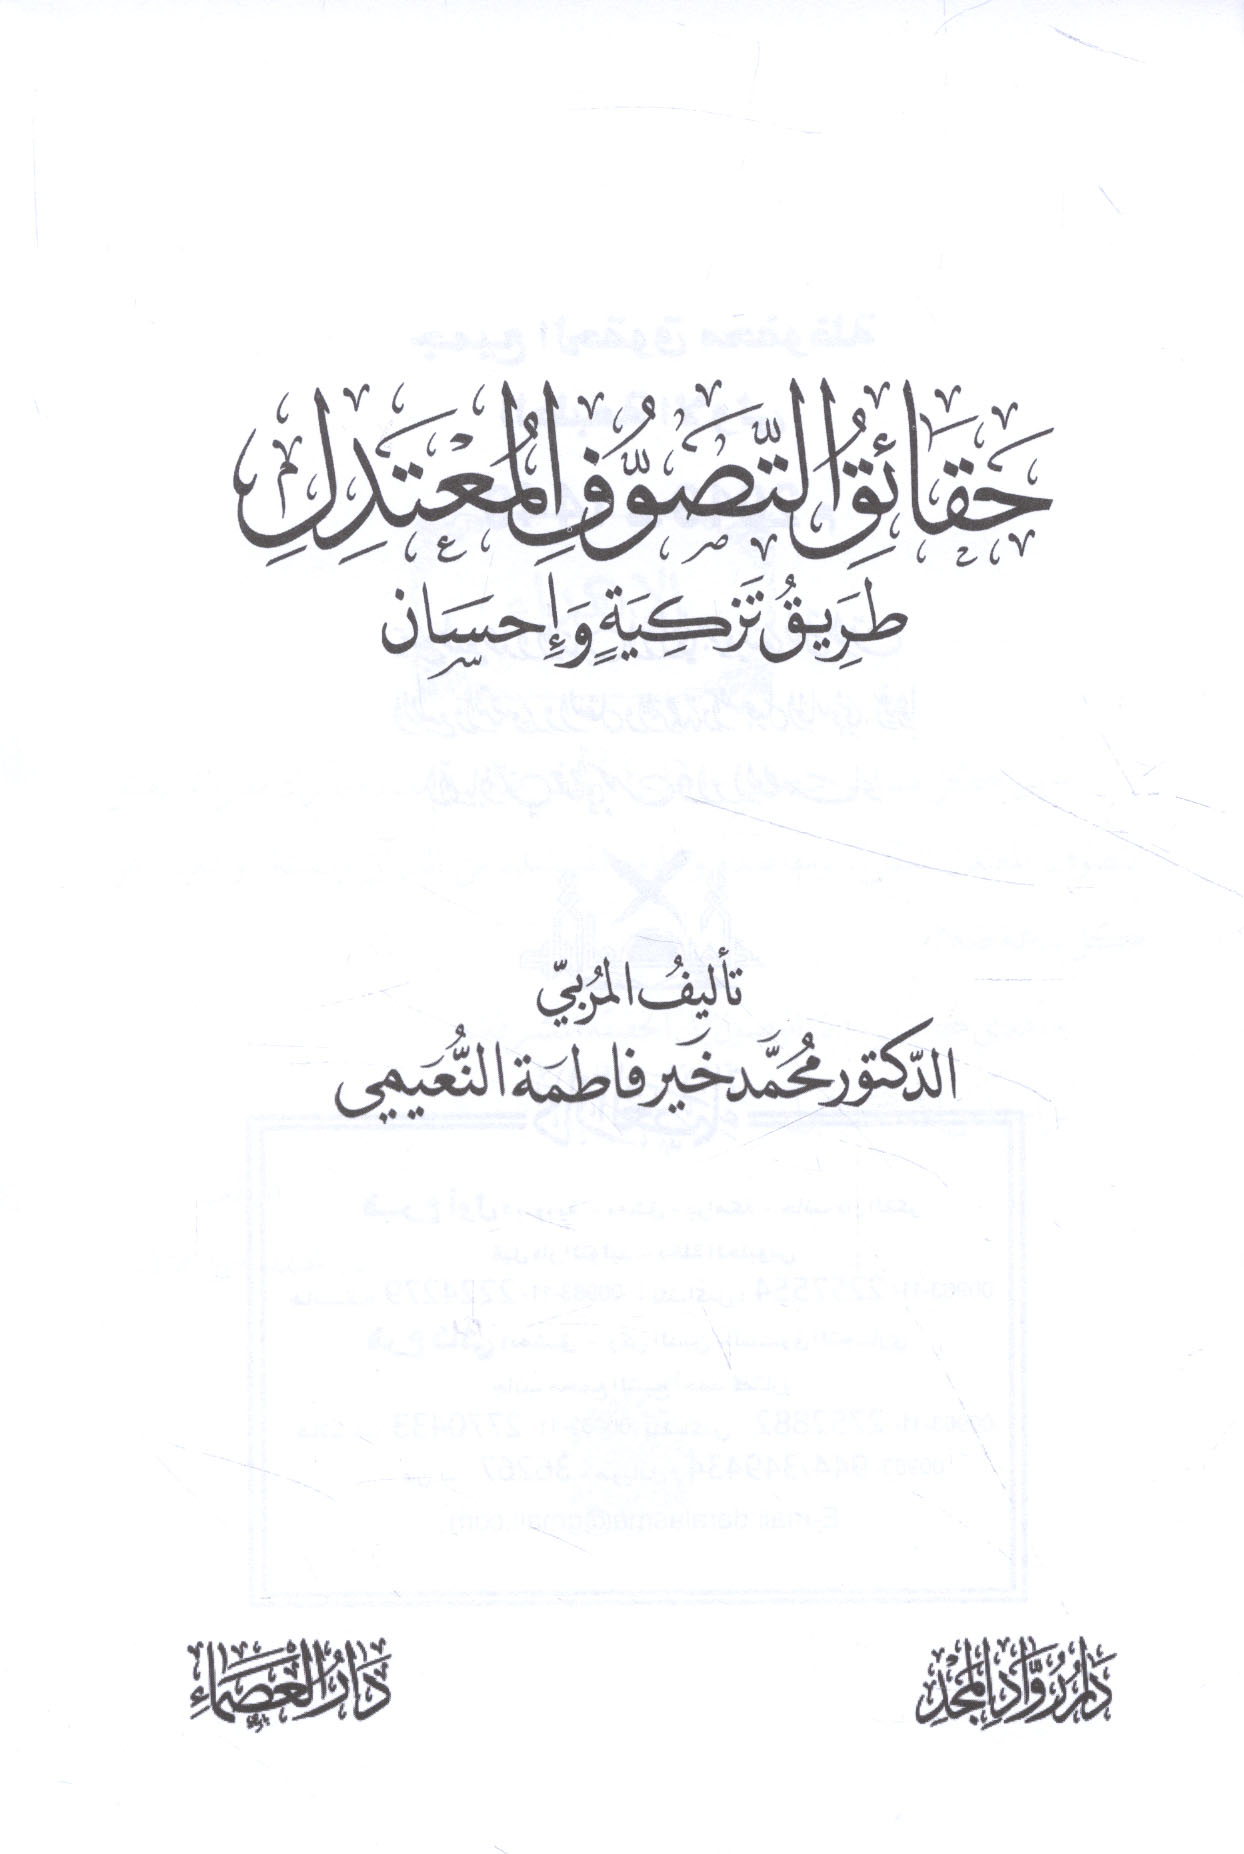 حَقَائِقُ التَّصَوُّفِ الْمُعْتَدِلِ
طَرِيقُ تَزْكِيَةٍ وَإِحسَان
تأليفُ المُربيّ
الدّكتور محُمَّد خَير فاطمة النُّعَيمي
دَارُ رُوَّادِ الْمَجْدِ
دَارُ الْعَصْمَاءِ